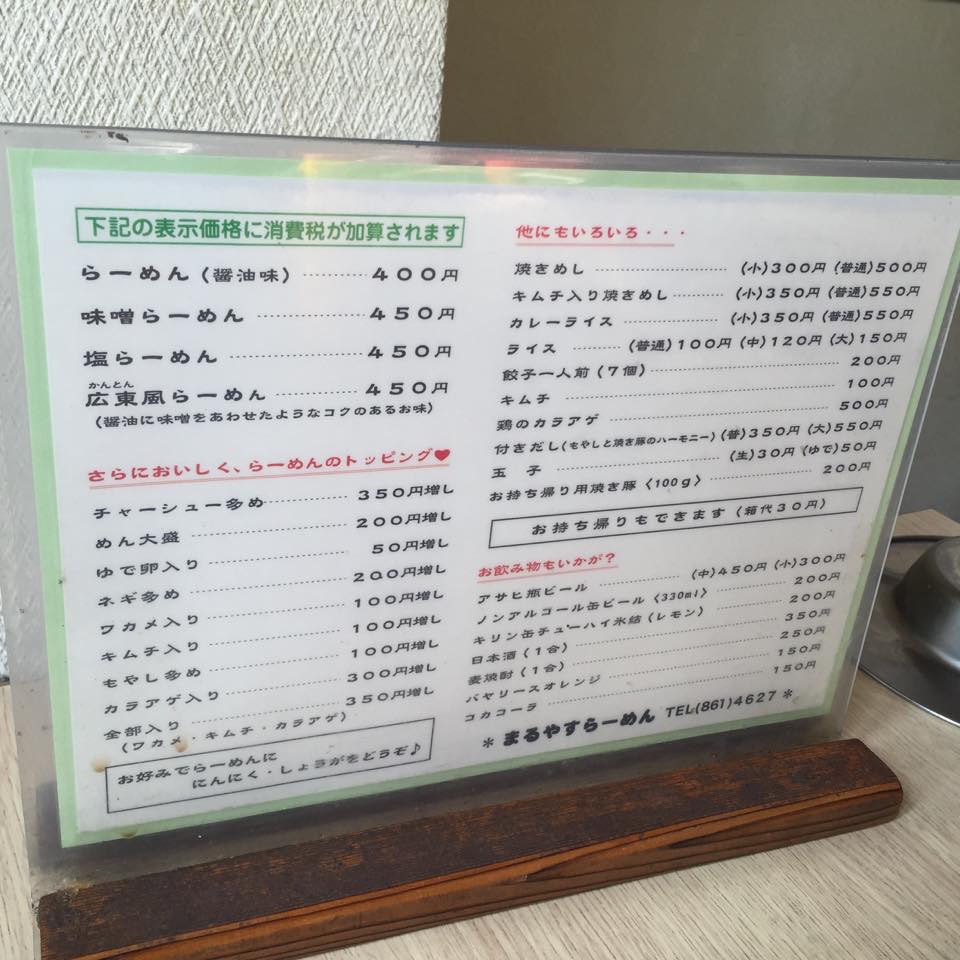 下記の表示価格に消費税が加算されます
らーめん（醤油味）………… 400円
味噌らーめん ………………… 450円
塩らーめん …………………… 450円
かんとん
広東風らーめん ……………… 450円
（醤油に味噌をあわせたようなコクのあるお味）
さらにおいしく、らーめんのトッピング♥
チャーシュー多め ………… 350円増し
めん大盛 …………………… 200円増し
ゆで卵入り ………………… 50円増し
ネギ多め …………………… 200円増し
ワカメ入り ………………… 100円増し
キムチ入り ………………… 100円増し
もやし多め ………………… 100円増し
カラアゲ入り ……………… 300円増し
全部入り …………………… 350円増し
（ワカメ・キムチ・カラアゲ）
お好みでらーめんに
にんにく・しょうがをどうぞ♪
他にもいろいろ・・・
焼きめし ………………… (小)300円 (普通)500円
キムチ入り焼きめし ……… (小)350円 (普通)550円
カレーライス …………… (小)350円 (普通)550円
ライス ………… (普通)100円 (中)120円 (大)150円
餃子一人前（7個）………………… 200円
キムチ ……………………………… 100円
鶏のカラアゲ ……………………… 500円
付きだし(もやしと焼き豚のハーモニー) (普)350円 (大)550円
玉 子 ………………… (生)30円 (ゆで)50円
お持ち帰り用焼き豚〈100g〉………… 200円
お持ち帰りもできます（箱代30円）
お飲み物もいかが？
アサヒ瓶ビール ………… (中)450円 (小)300円
ノンアルコール缶ビール〈330ml〉……… 200円
キリン缶チューハイ氷結（レモン）……… 200円
日本酒（1合）………………………… 350円
麦焼酎（1合）………………………… 250円
バヤリースオレンジ ………………… 150円
コカコーラ …………………………… 150円
＊ まるやすらーめん TEL(861)4627 ＊